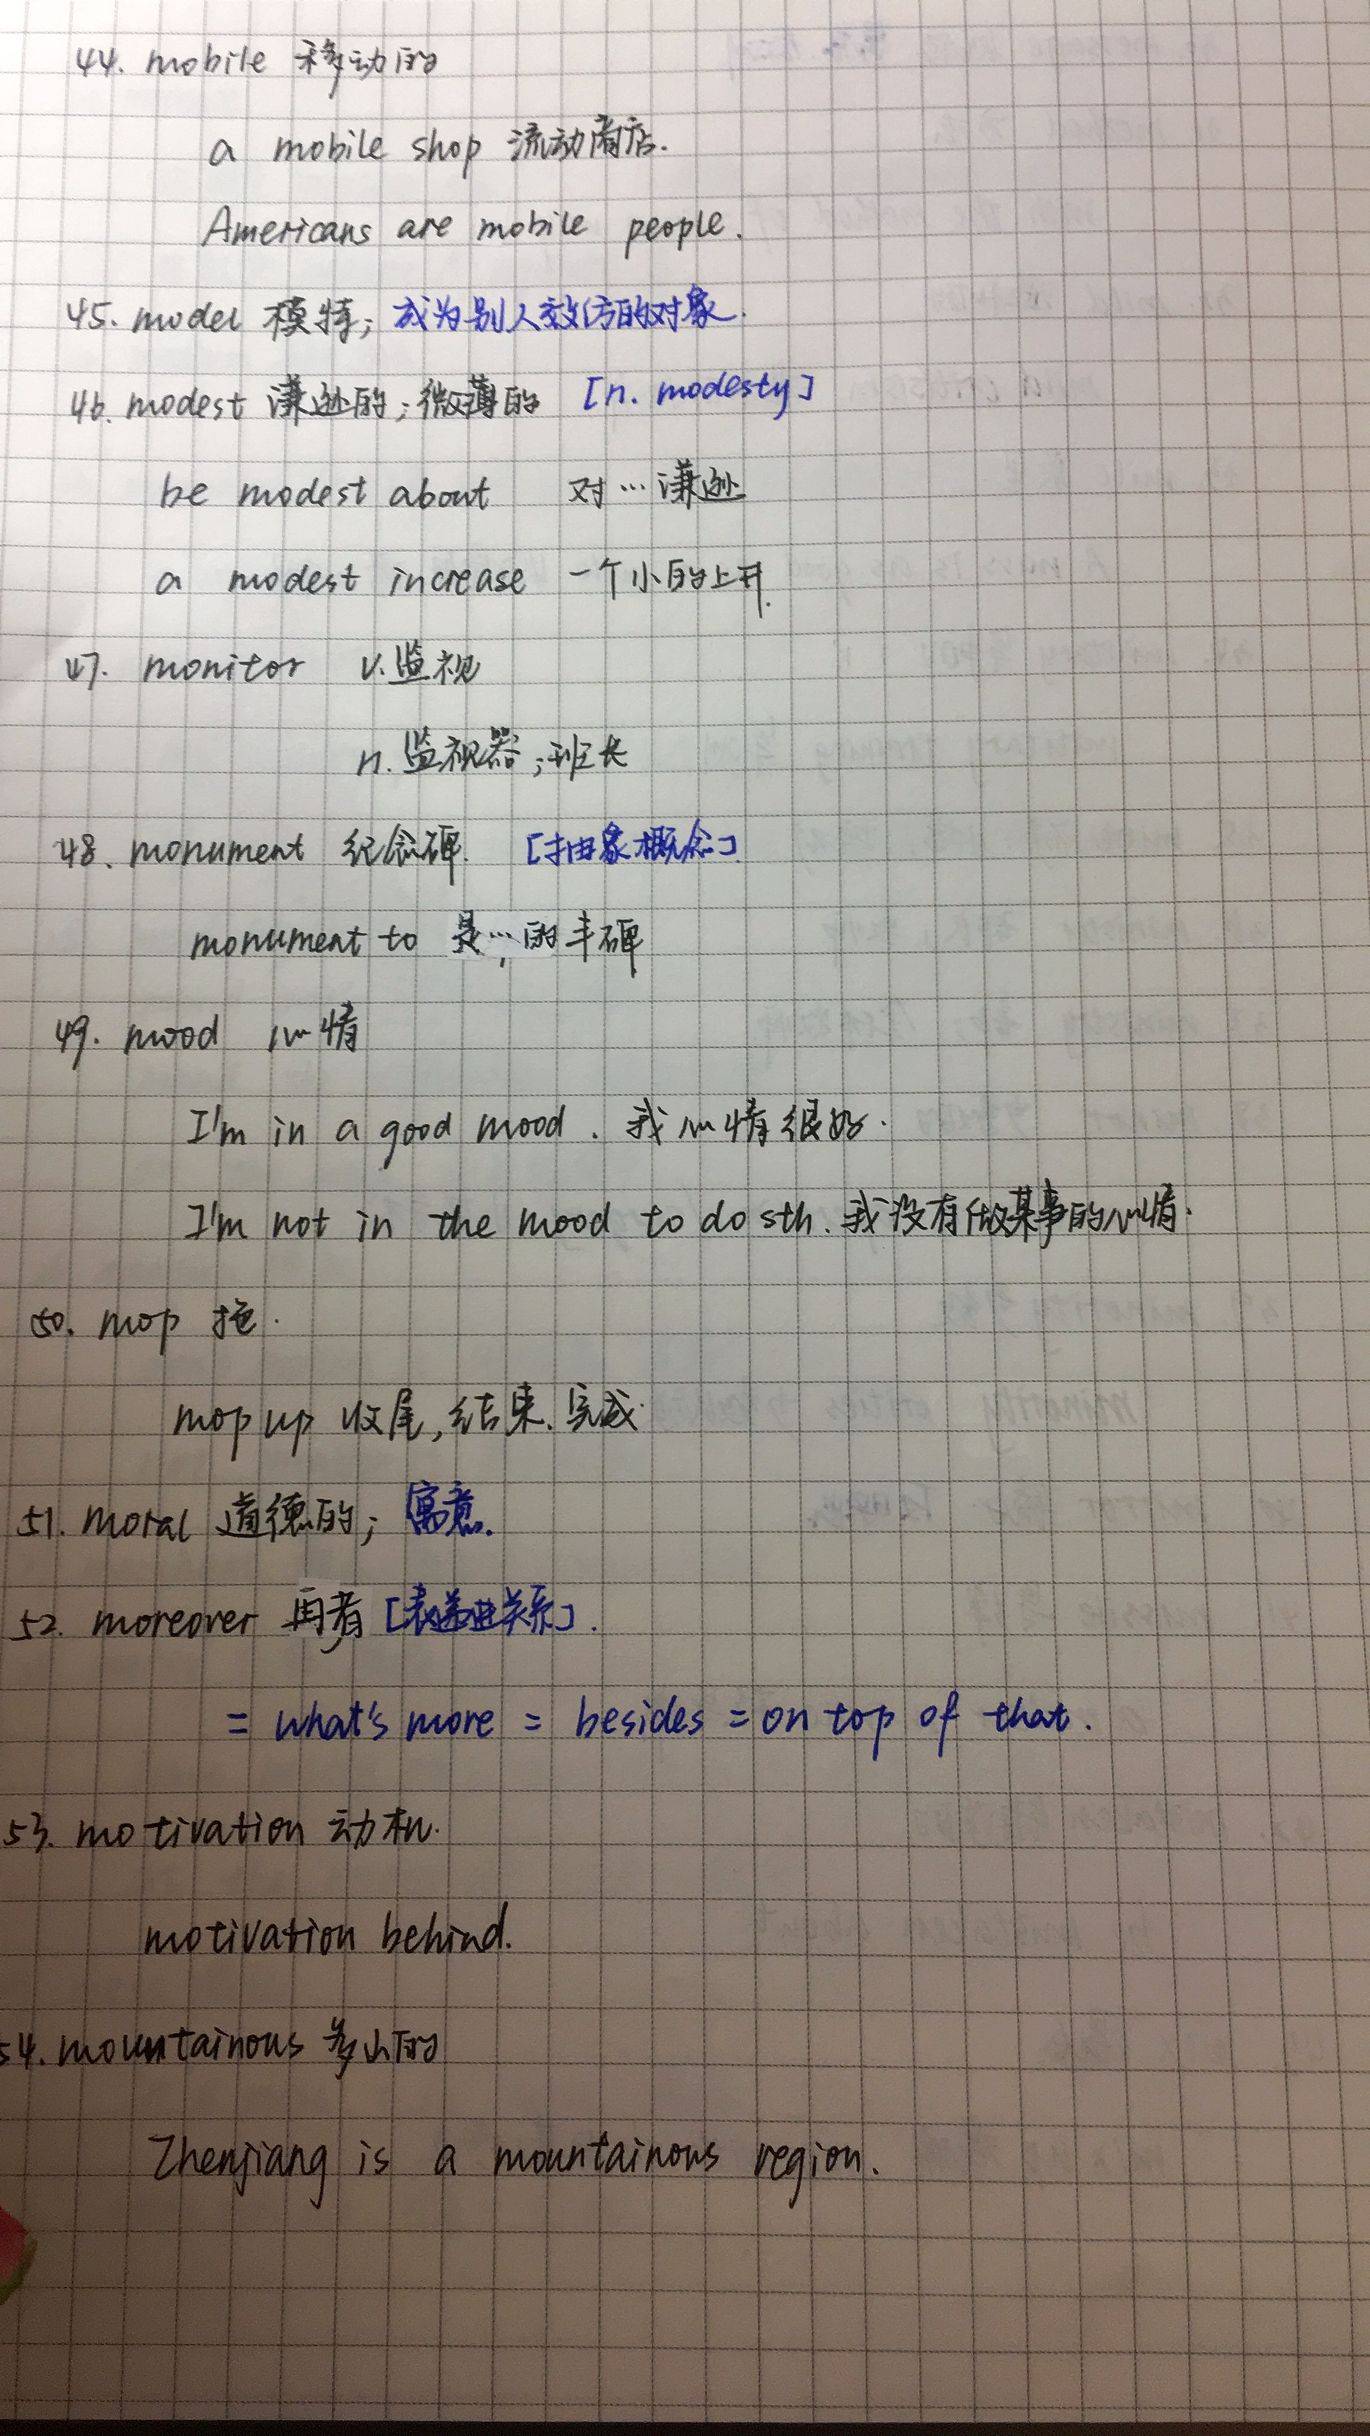 44. mobile 移动的
a mobile shop 流动商店.
Americans are mobile people.
45. model 模特; 成为别人效仿的对象.
46. modest 谦逊的; 微薄的 [n. modesty]
be modest about 对…谦逊
a modest increase 一个小的上升.
47. monitor v.监视
n.监视器;班长
48. monument 纪念碑. [抽象概念]
monument to 是…的丰碑
49. mood 心情
I'm in a good mood. 我心情很好.
I'm not in the mood to do sth. 我没有做某事的心情.
50. mop 拖.
mop up 收尾,结束.完成.
51. moral 道德的; 寓意.
52. moreover 再者 [表递进关系].
= what's more = besides = on top of that.
53. motivation 动机.
motivation behind.
54. mountainous 多山的
Zhenjiang is a mountainous region.